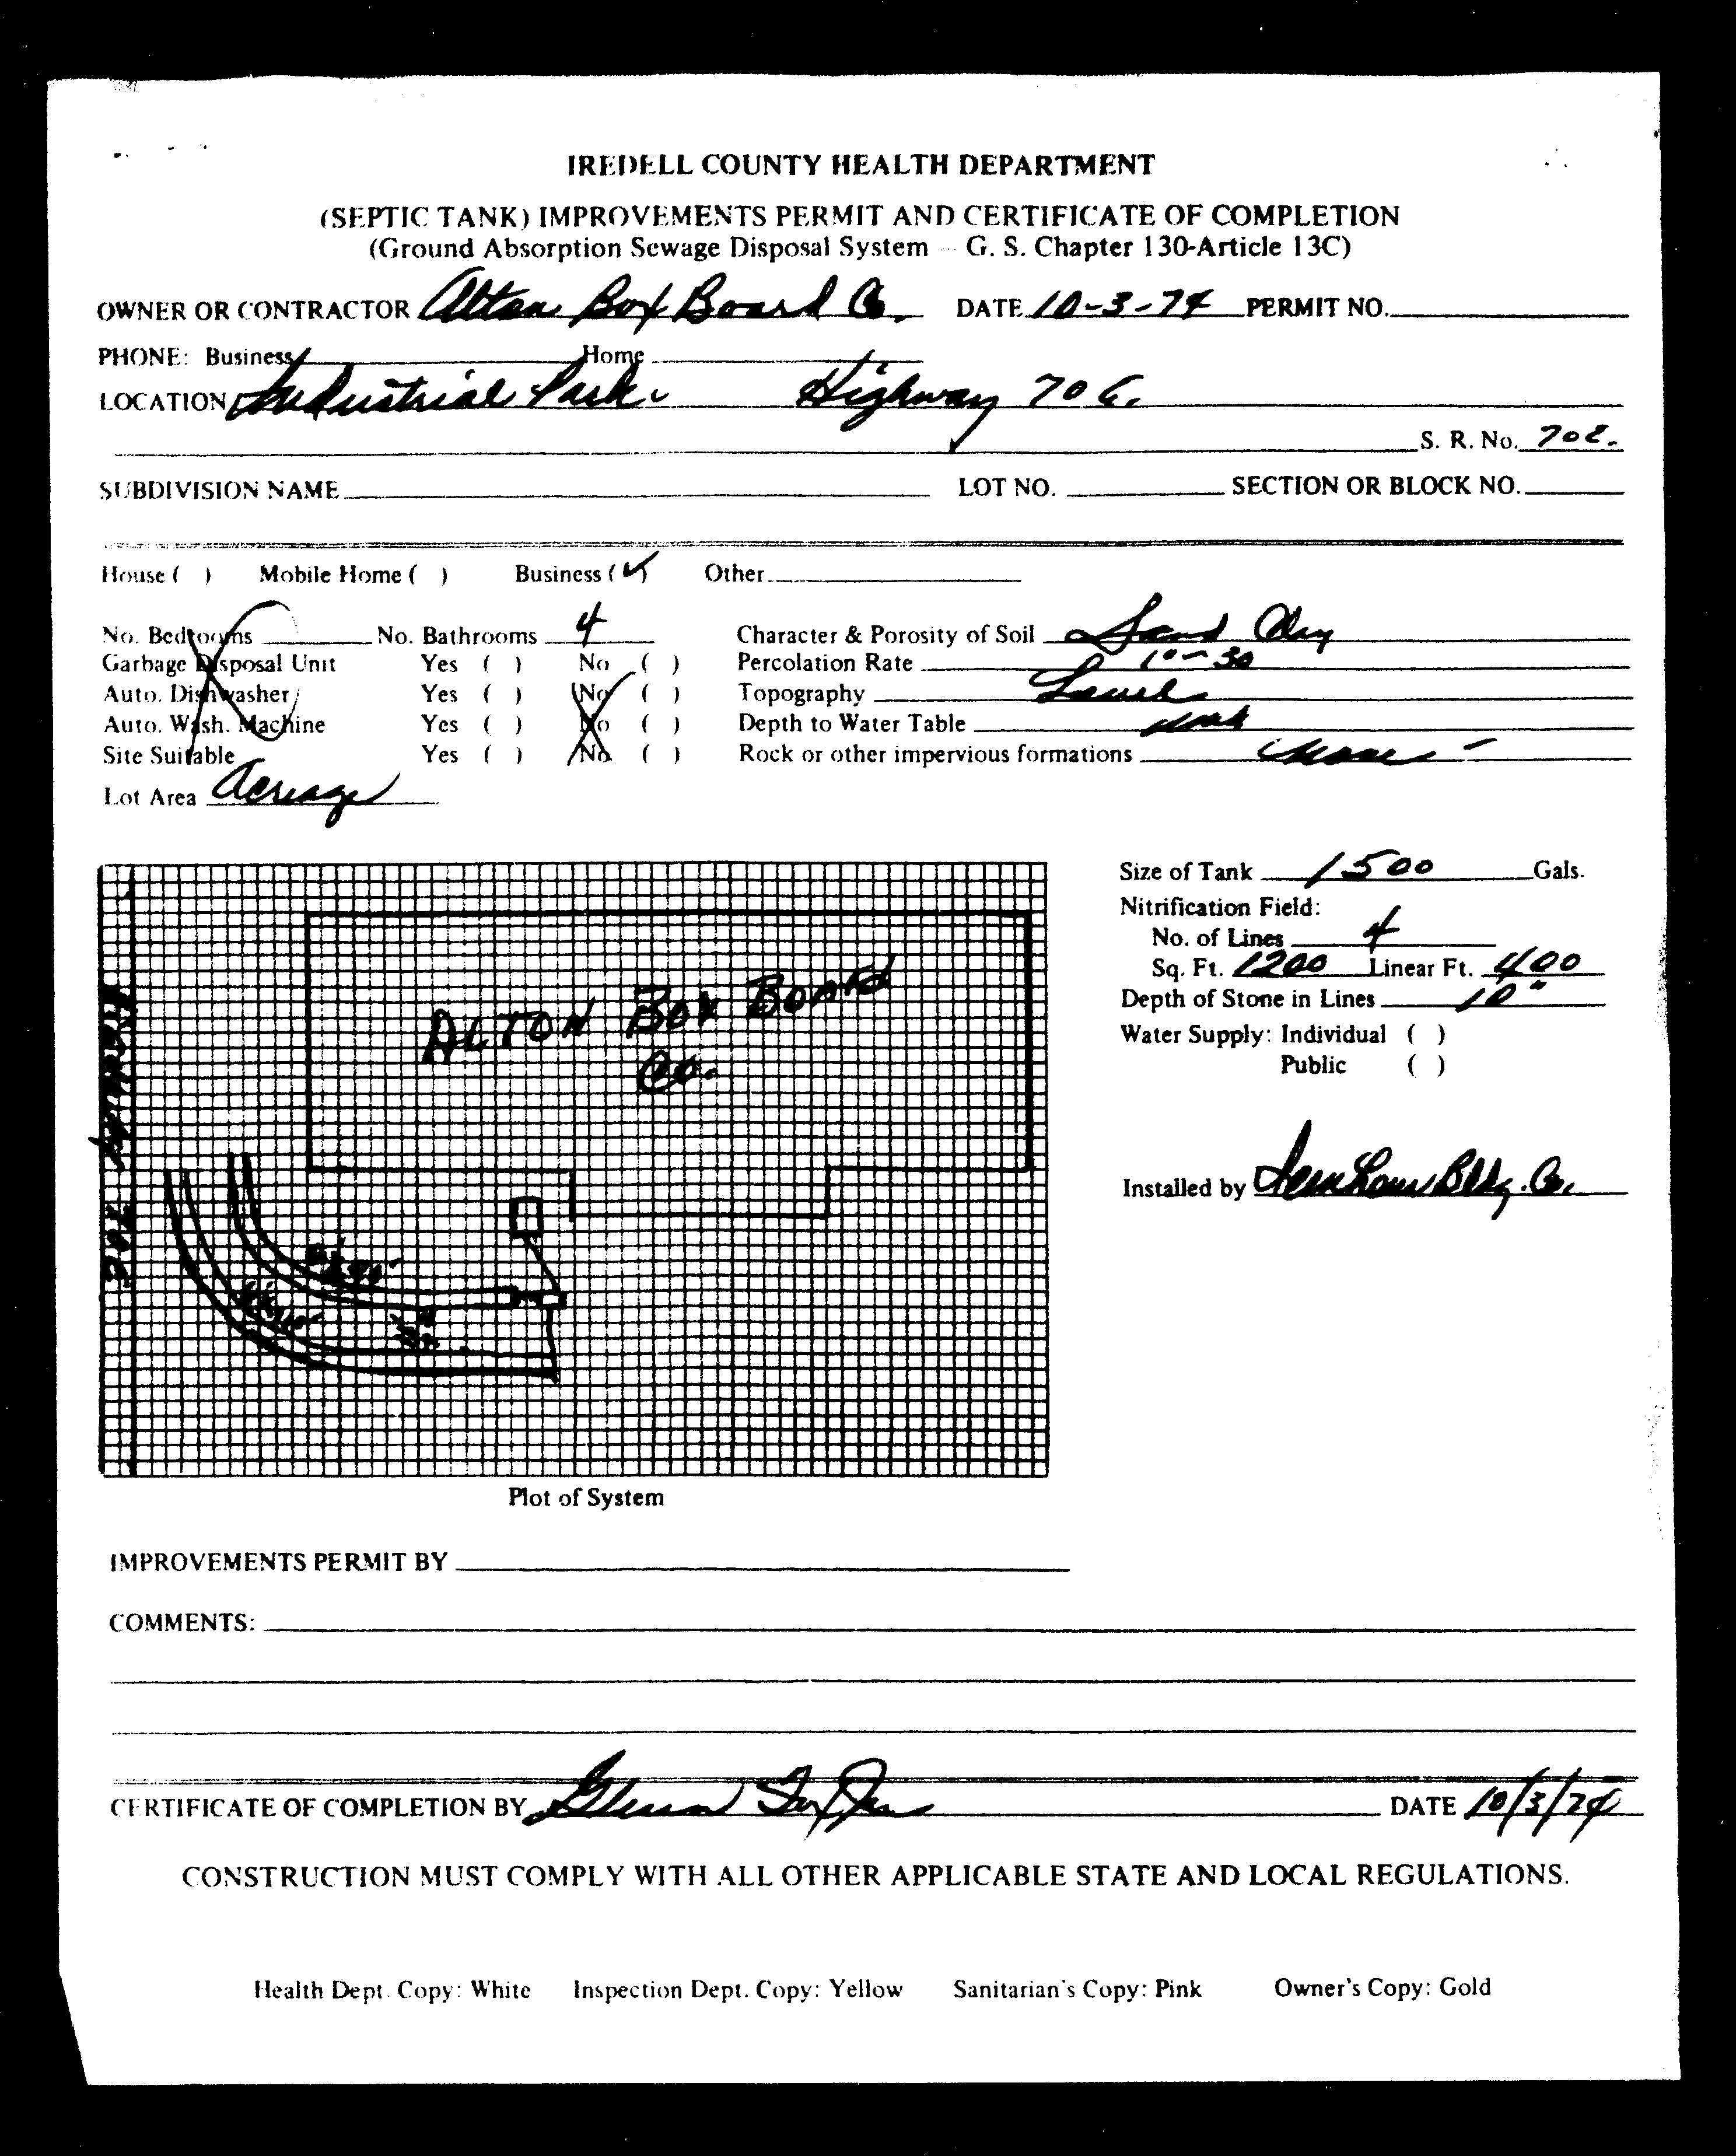 IREDELL COUNTY HEALTH DEPARTMENT
(SEPTIC TANK) IMPROVEMENTS PERMIT AND CERTIFICATE OF COMPLETION
(Ground Absorption Sewage Disposal System – G. S. Chapter 130-Article 13C)
OWNER OR CONTRACTOR Alton Box Board Co. DATE 10-3-74 PERMIT NO.
PHONE: Business Home
LOCATION Industrial Park. Highway 70 E.
S. R. No. 70E.
SUBDIVISION NAME LOT NO. SECTION OR BLOCK NO.
House ( ) Mobile Home ( ) Business (✓) Other
No. Bedrooms No. Bathrooms 4 Character & Porosity of Soil Sand Clay
Garbage Disposal Unit Yes ( ) No ( ) Percolation Rate 10-30
Auto. Dishwasher Yes ( ) No ( ) Topography Level
Auto. Wash. Machine Yes ( ) No ( ) Depth to Water Table
Site Suitable Yes ( ) No ( ) Rock or other impervious formations None
Lot Area Acreage
Size of Tank 1500 Gals.
Nitrification Field:
No. of Lines 4
Sq. Ft. 1200 Linear Ft. 400
Depth of Stone in Lines 10"
Water Supply: Individual ( )
Public ( )
Installed by Bldg. Co.
ALTON BOX BOARD
CO.
Highway 70E
Plot of System
IMPROVEMENTS PERMIT BY
COMMENTS:
CERTIFICATE OF COMPLETION BY Glenn DATE 10/3/74
CONSTRUCTION MUST COMPLY WITH ALL OTHER APPLICABLE STATE AND LOCAL REGULATIONS.
Health Dept. Copy: White Inspection Dept. Copy: Yellow Sanitarian's Copy: Pink Owner's Copy: Gold